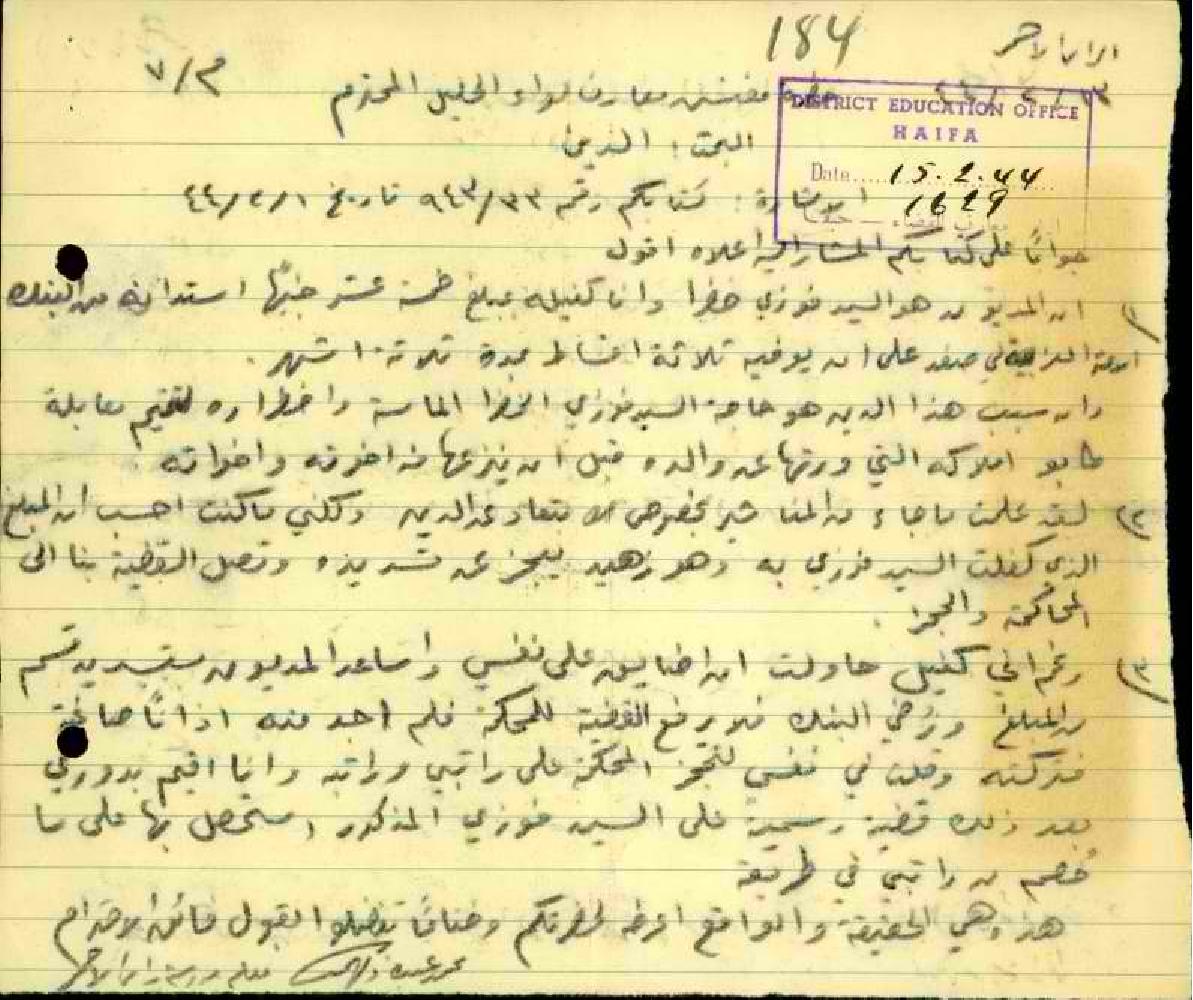 184
الراس الاحمر
م/٧
١٣/٢/٤٤
حضرة مفتش معارف لواء الجليل المحترم
DISTRICT EDUCATION OFFICE
HAIFA
Date.... 15.2.44
1629
البحث: الدين
الاشارة: كتابكم رقم ٩٤٣/٣٣ تاريخ ٤٤/٢/١
جوابًا على كتابكم المشار اليه أعلاه اقول
١) ان المديون هو السيد فوزي خضرا وانا كفيله بمبلغ خمسة عشر جنيهًا استدانه من البنك
العربية في صفد على ان يوفيه ثلاثة اقساط بمدة ثلاثة اشهر.
وان سبب هذا الدين هو حاجة السيد فوزي الخضرا الماسة واضطراره لتقديم معاملة
طابو املاكه التي ورثها عن والده قبل ان ينزعها من اخوته واخواته
٢) لقد علمت ما جاء من المناشير بخصوص الابتعاد عن الدين ولكني ما كنت احسب ان المبلغ
الذي كفلت السيد فوزي به وهو زهيد يعجز عن تسديده وتصل القضية بنا الى
المحاكمة والحجز.
٣) رغم اني كفيل حاولت ان اضايق على نفسي واساعد المديون بتسديد قسم
من المبلغ ورضي البنك فلا يرفع القضية للمحكمة فلم اجد منه اذانًا صاغية
فتركته وقلت في نفسي لتحجز المحكمة على راتبي وراتبه وانا اقيم بدوري
بعد ذلك قضية رسمية على السيد فوزي المذكور استحصل بها على ما
خصم من راتبي في طريقة
هذه هي الحقيقة والواقع اعرضه لحضرتكم وختامًا تفضلوا بقبول فائق الاحترام
معلم مدرسة الراس الاحمر